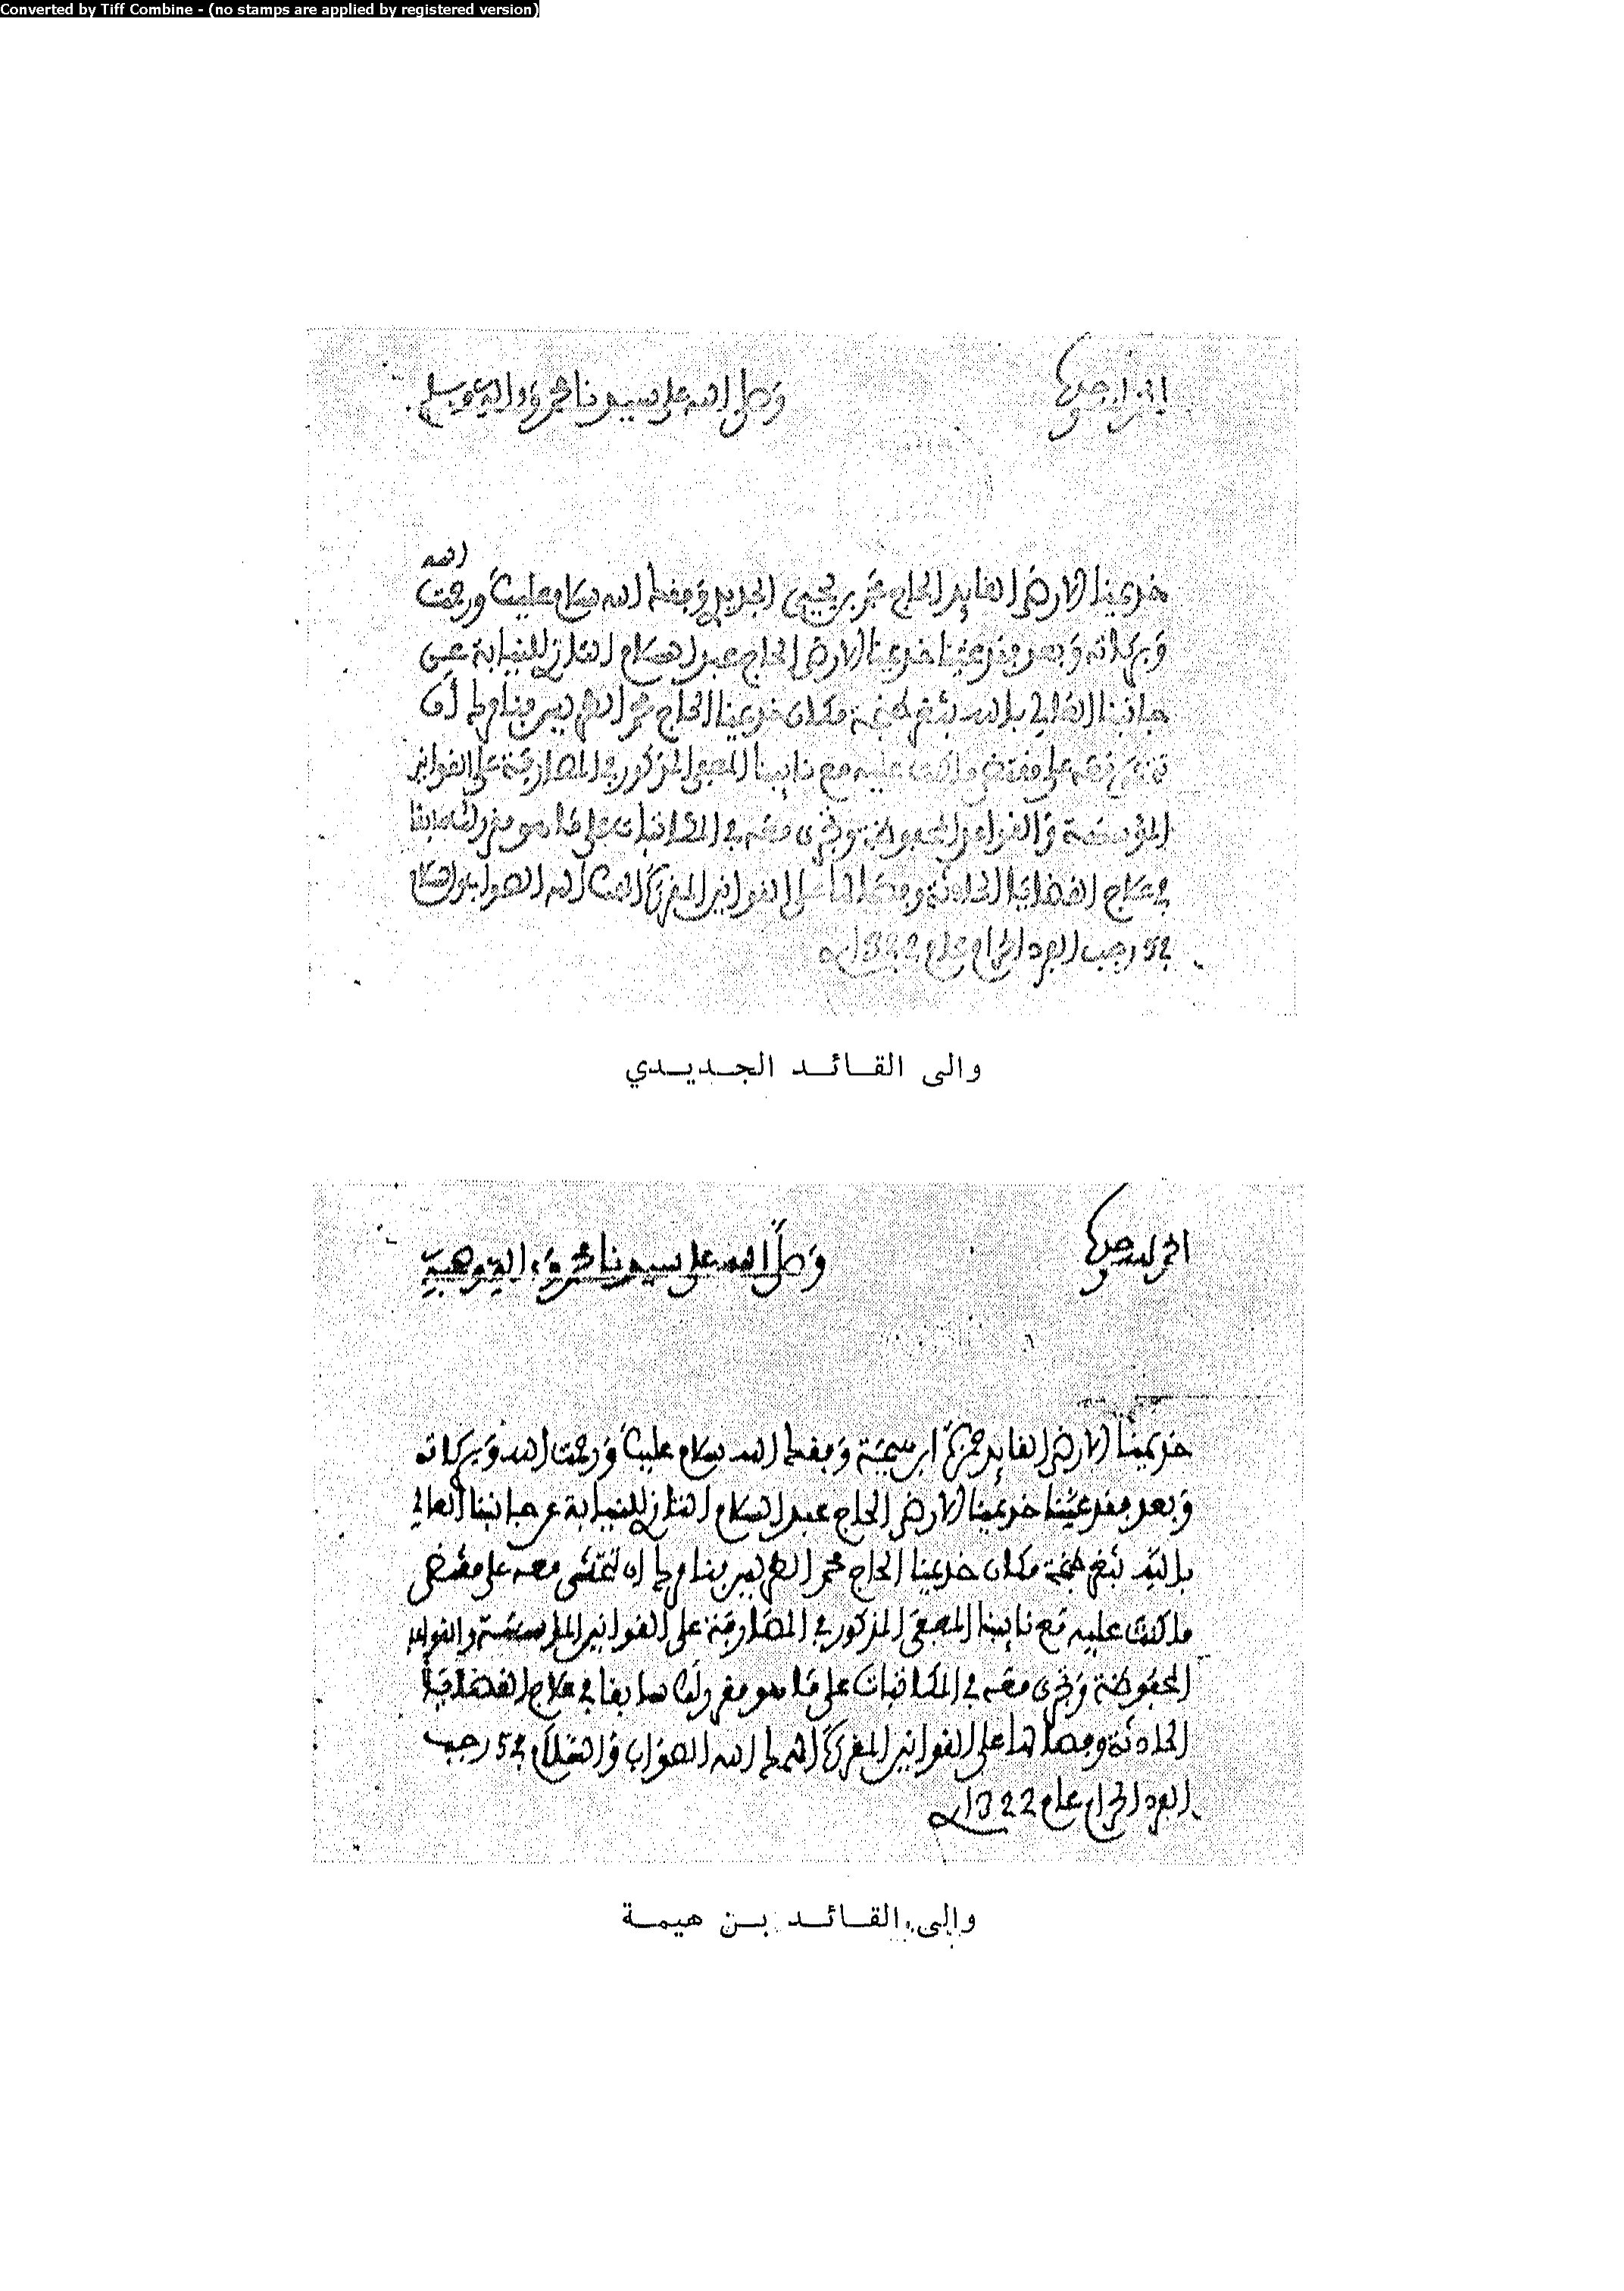 Converted by Tiff Combine - (no stamps are applied by registered version)
الحمد لله وحده
وصلى الله على سيدنا محمد وءاله وصحبه وسلم
خديمنا الأرضى القايد الحاج محمد بن يحيى الجديدي وفقك الله سلام عليك ورحمت الله
وبركاته وبعد فقد عيننا خديمنا الارضى الحاج عبد السلام التازي للنيابة عن
جانبنا العالي بالله بثغر طنجة مكان خديمنا الحاج محمد الطريس فنامرك أن
تتمشى معه على مقتضى ما كنت عليه مع نايبنا المذكور في المصارفة على القوانين
المؤسسة والقواعد المحفوظة وتجرى معه في المكاتبات على ما هو مقرر لك سابقا
في علاج القضايا الحادثة وفصالها على القوانين المقررة الهمك الله الصواب والسلام
في 25 رجب الفرد الحرام عام 1322
والى القائد الجديدي
الحمد لله وحده
وصلى الله على سيدنا محمد وءاله وصحبه
خديمنا الارضى القايد حمزة ابن هيمة وفقك الله سلام عليك ورحمت الله وبركاته
وبعد فقد عيننا خديمنا الارضى الحاج عبد السلام التازي للنيابة عن جانبنا العالي
بالله بثغر طنجة مكان خديمنا الحاج محمد الطريس فنامرك ان تتمشى معه على مقتضى
ما كنت عليه مع نايبنا المذكور في المصارفة على القوانين المؤسسة والقواعد
المحفوظة وتجرى معه في المكاتبات على ما هو مقرر لك سابقا في علاج القضايا
الحادثة وفصالها على القوانين المقررة الهمك الله الصواب والسلام في 25 رجب
الفرد الحرام عام 1322
والى القائد بن هيمة